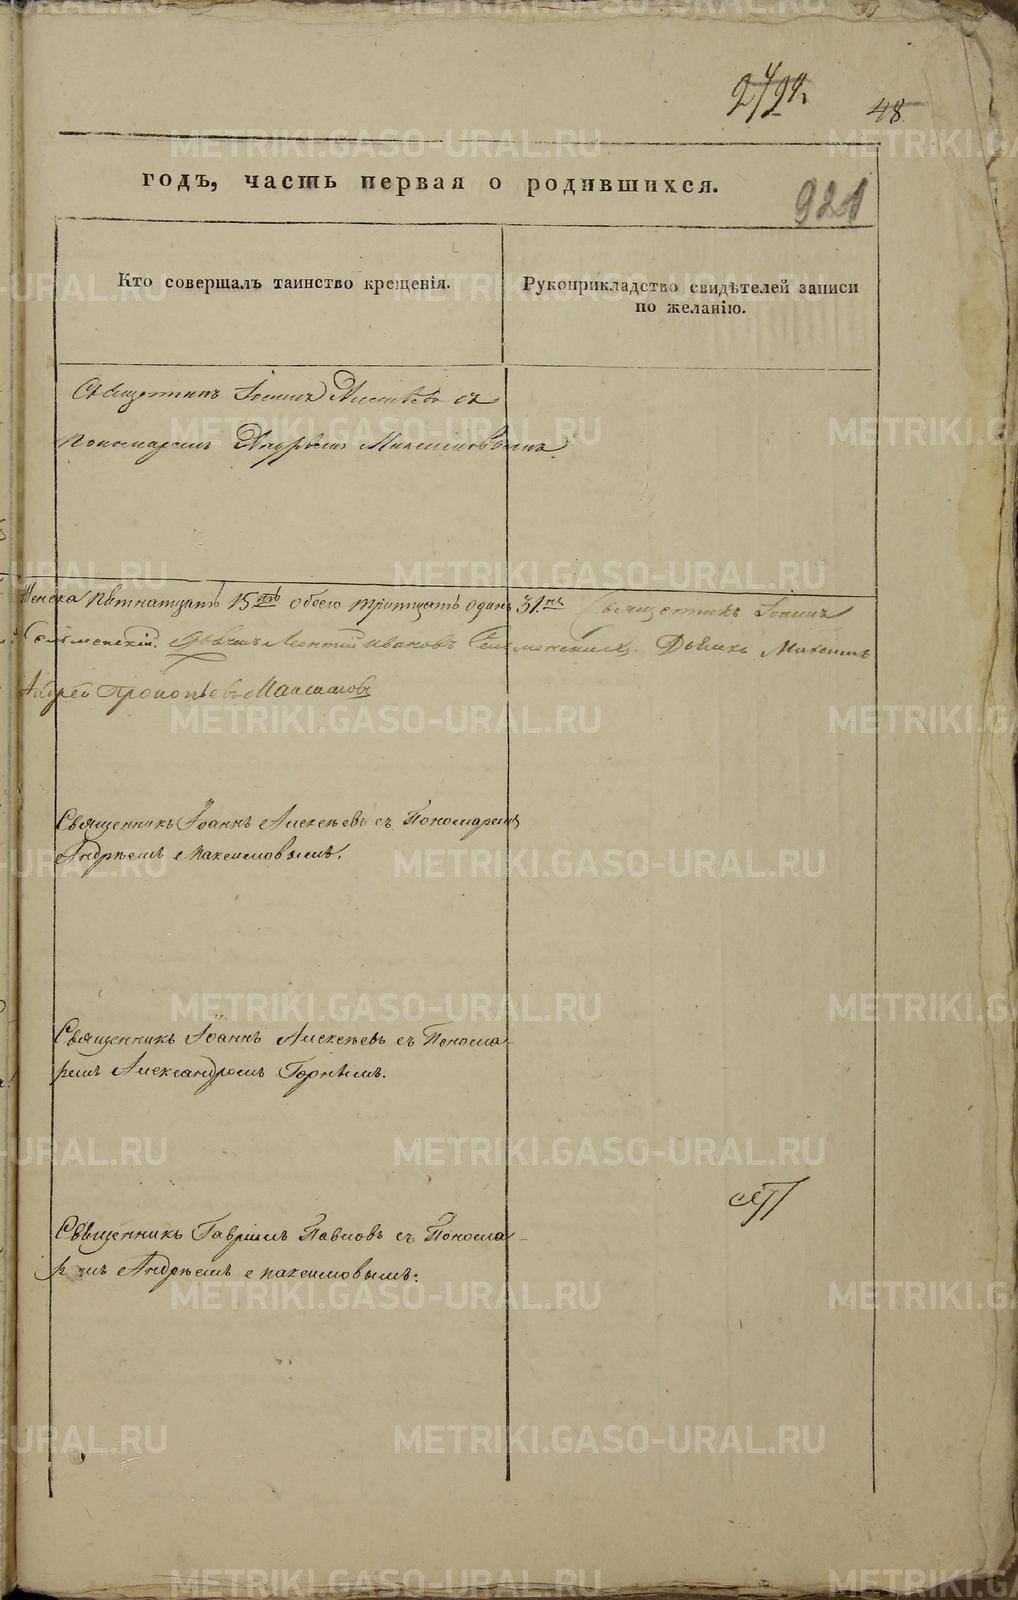 48
921
годъ, часть первая о родившихся.
Кто совершалъ таинство крещенія.
Рукоприкладство свидѣтелей записи
по желанію.
Священникъ Іоаннъ Алексѣевъ съ
пономаремъ Андрѣемъ Максимовымъ
Женска пѣтнатцать 15ть обоего тритцать одинъ 31нъ Священникъ Іоаннъ
Леонтій Ивановъ Дьячкъ Максимъ
Андрей Прокопьевъ Максимовъ
Священникъ Іоаннъ Алексѣевъ съ Пономаремъ
Андрѣемъ Максимовымъ.
Священникъ Іоаннъ Алексѣевъ съ Понома-
ремъ Александромъ Горнымъ.
Священникъ Гавріилъ Павловъ съ Понома-
ремъ Андрѣемъ Максимовымъ.
METRIKI.GASO-URAL.RU